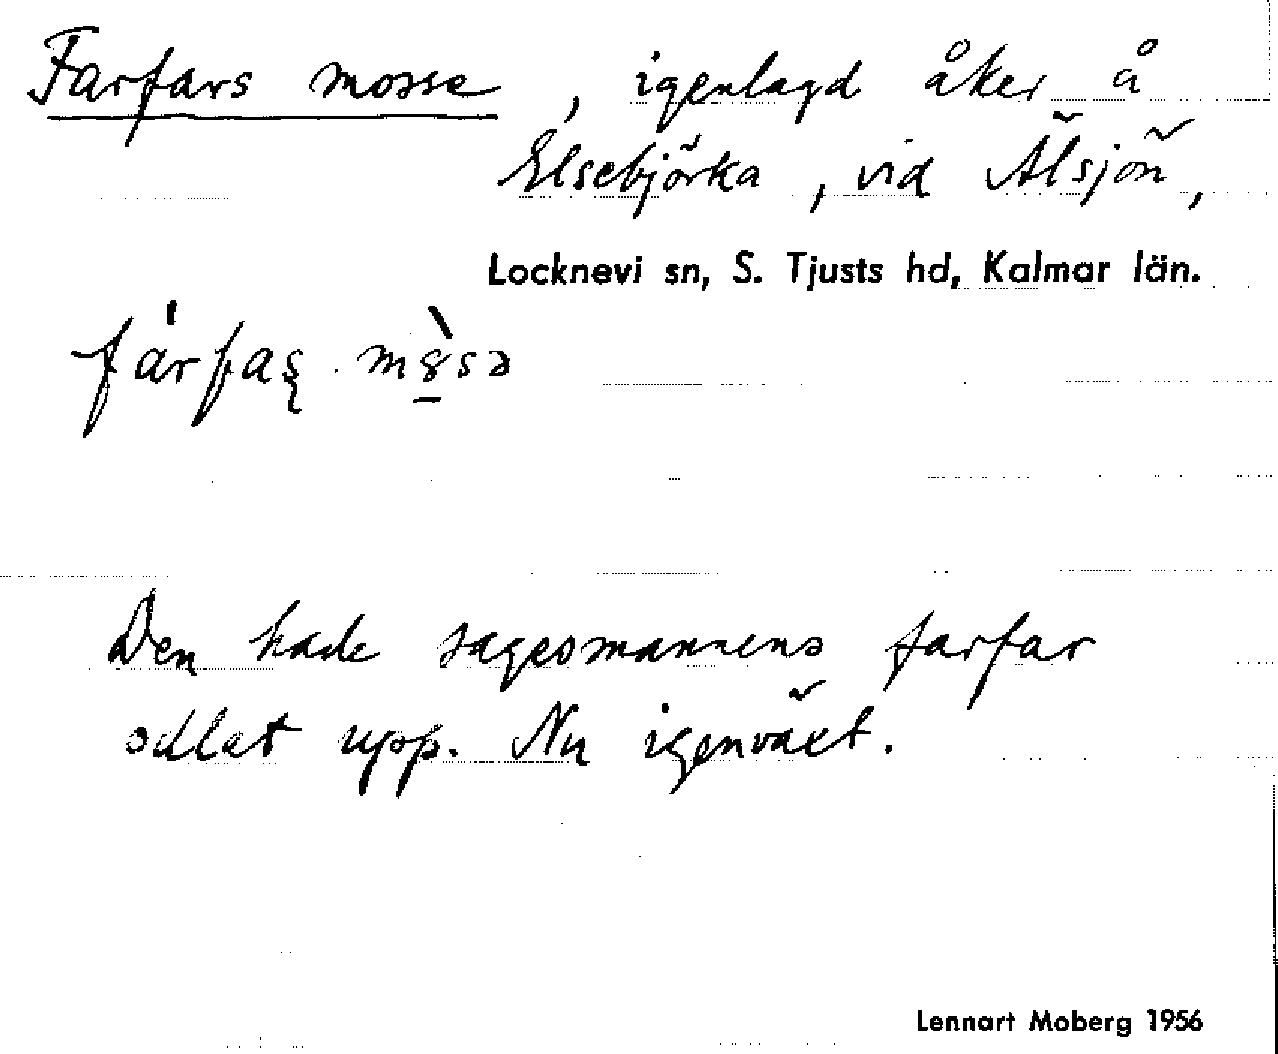 Farfars mosse, igenlagd åker å
Elsebjörka, vid Älsjön,
Locknevi sn, S. Tjusts hd, Kalmar län.
Den hade sagesmannens farfar
odlat upp. Nu igenväxt.
Lennart Moberg 1956